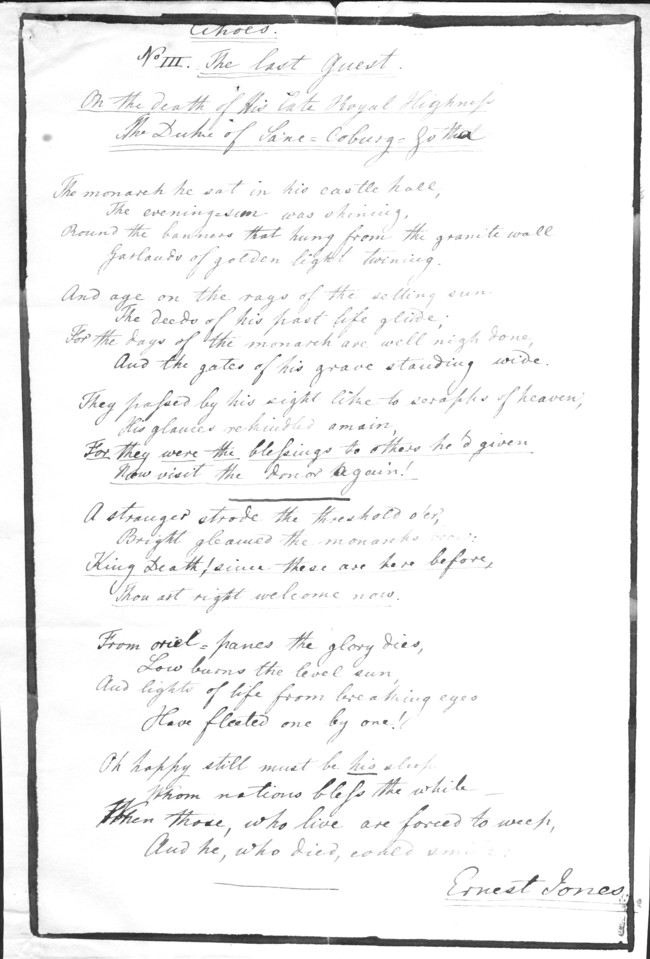 Echoes.
No III. The last Guest.
On the death of His late Royal Highness
The Duke of Saxe=Coburg=Gotha
The monarch he sat in his castle hall,
The evening-sun was shining,
Round the banners that hung from the granite wall
Garlands of golden light twining.
And age on the rays of the setting sun
The deeds of his past life glide;
For the days of the monarch are well nigh done,
And the gates of his grave standing wide.
They passed by his sight like to seraphs of heaven;
His glances rekindled amain,
For they were the blessings to others he'd given
Now visit the donor again!
A stranger strode the threshold o'er,
Bright gleamed the monarchs
King Death! since these are here before,
Thou art right welcome now.
From oriel=panes the glory dies,
Low burns the level sun,
And lights of life from breathing eyes
Have fleeted one by one!
Oh happy still must be his sleep
Whom nations bless the while —
When those, who live are forced to weep,
And he, who died, could
Ernest Jones